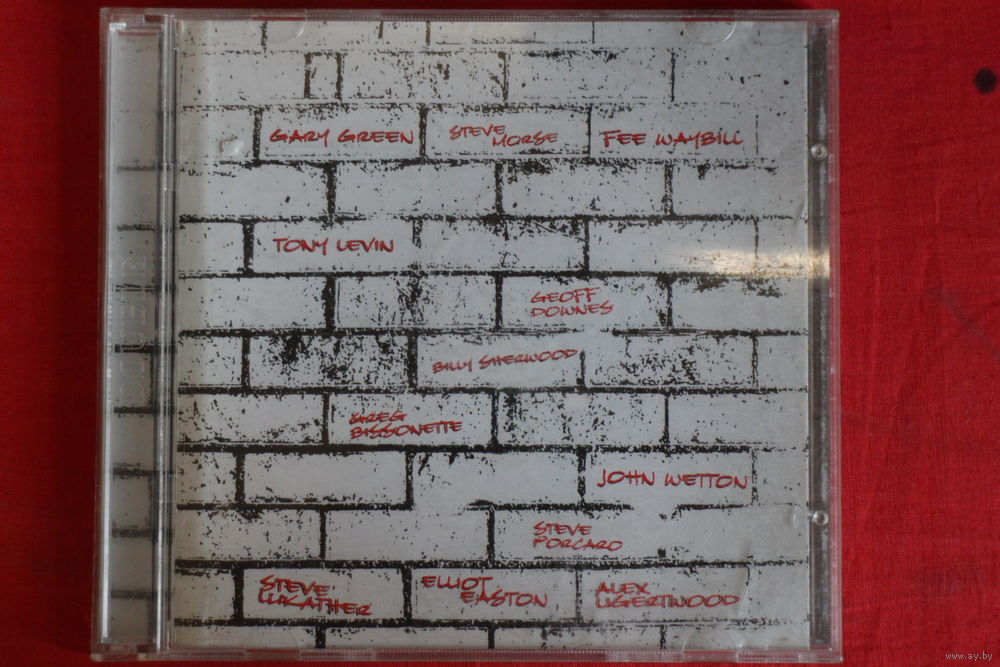 GARY GREEN
STEVE
MORSE
FEE WAYBILL
TONY LEVIN
GEOFF
DOWNES
BILLY SHERWOOD
GREG
BISSONETTE
JOHN WETTON
STEVE
PORCARO
STEVE
LUKATHER
ELLIOT
EASTON
ALEX
LIGERTWOOD
DOUBLE
www.ay.by